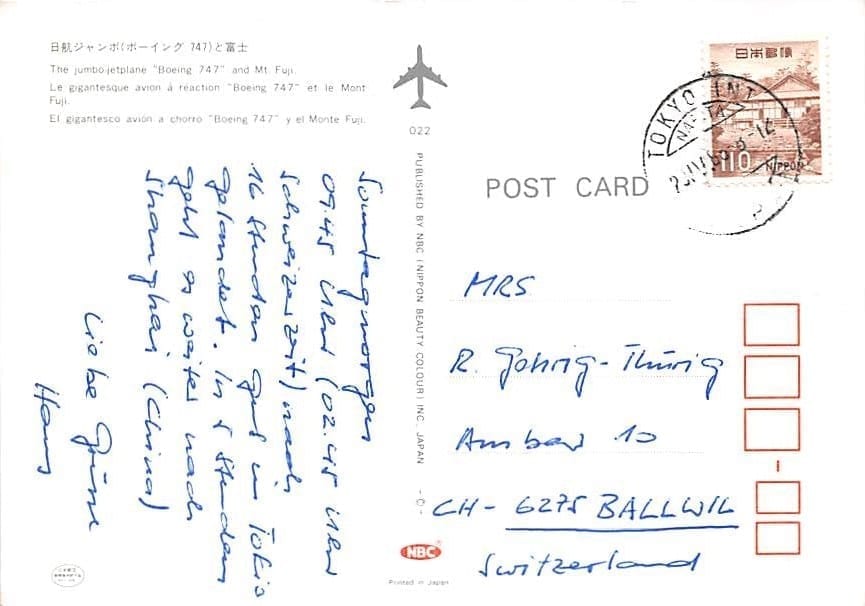 日航ジャンボ(ボーイング 747)と富士
The jumbo-jetplane "Boeing 747" and Mt. Fuji.
Le gigantesque avion à réaction "Boeing 747" et le Mont
Fuji.
El gigantesco avión a chorro "Boeing 747" y el Monte Fuji.
022
PUBLISHED BY NBC (NIPPON BEAUTY COLOUR) INC., JAPAN
-0-
NBC
Printed in Japan
Sonntagmorgen
09.45 Uhr (02.45 Uhr
Schweizerzeit) nach
16 Stunden gut in Tokio
gelandet. In 5 Stunden
geht es weiter nach
Shanghai (China)
Liebe Grüsse
Hans
POST CARD
日本郵便
110 NIPPON
TOKYO INT
MRS
R. Gehrig-Thürig
Ambar 10
CH- 6275 BALLWIL
Switzerland